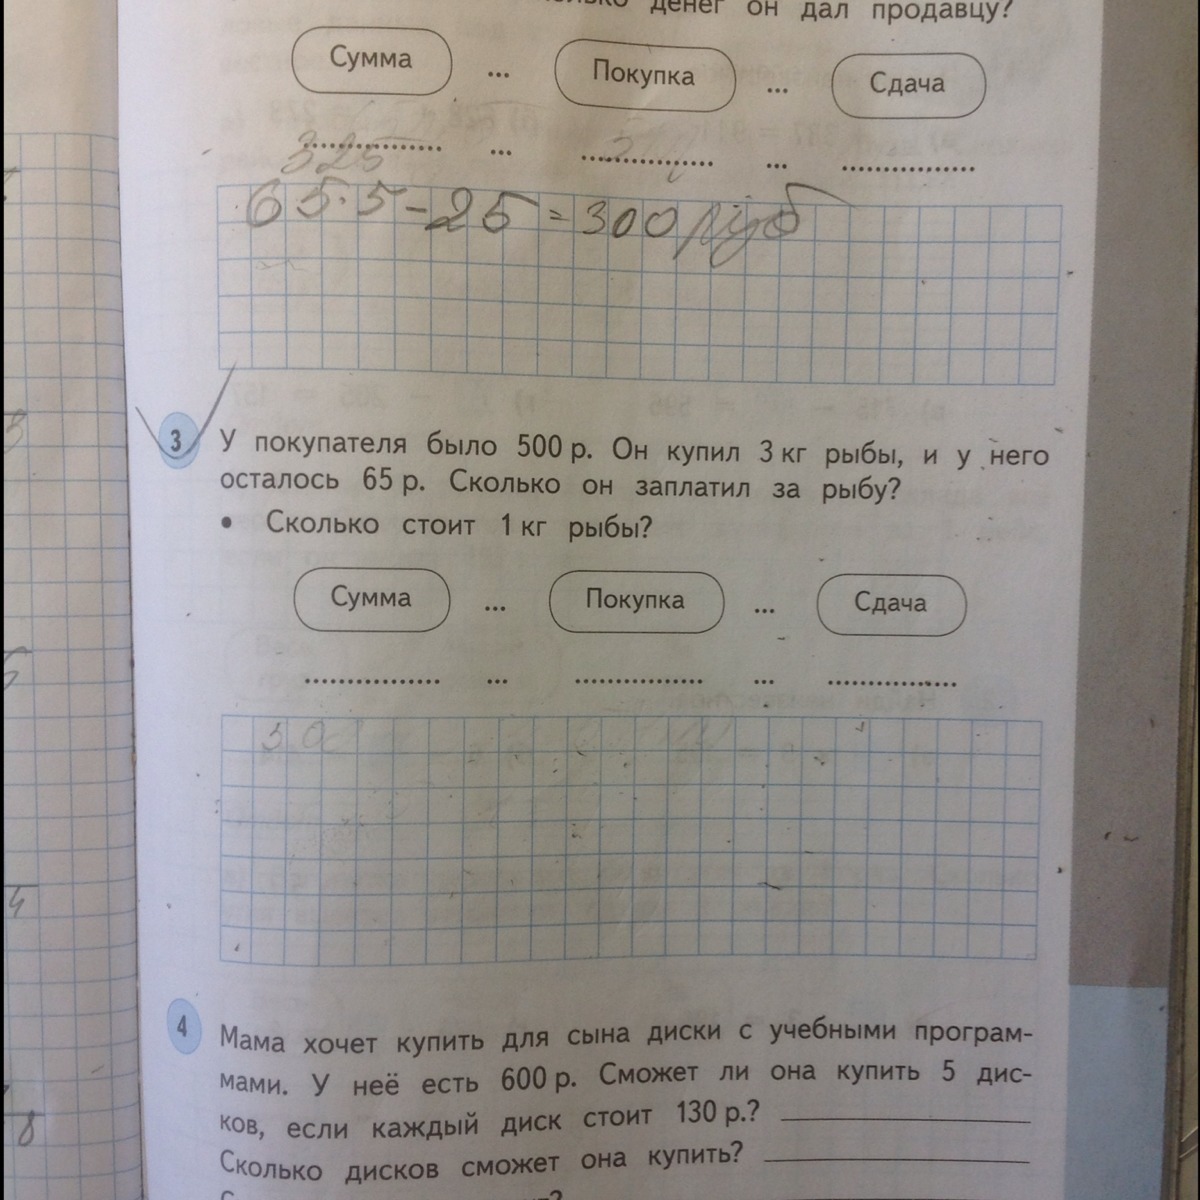 денег он дал продавцу?
Сумма ... Покупка ... Сдача
325
65·5-25=300 руб
3 У покупателя было 500 р. Он купил 3 кг рыбы, и у него
осталось 65 р. Сколько он заплатил за рыбу?
• Сколько стоит 1 кг рыбы?
Сумма ... Покупка ... Сдача
4 Мама хочет купить для сына диски с учебными програм-
мами. У неё есть 600 р. Сможет ли она купить 5 дис-
ков, если каждый диск стоит 130 р.?
Сколько дисков сможет она купить?